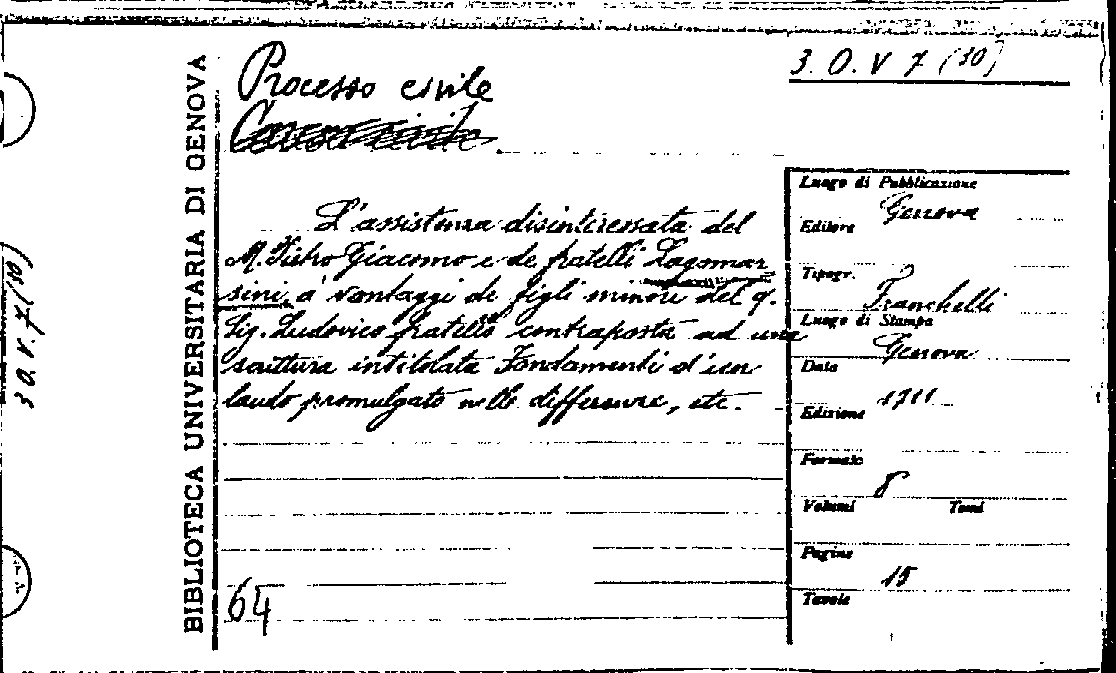 3. O. V 7 (10)
Processo civile
BIBLIOTECA UNIVERSITARIA DI GENOVA
3 O. V. 7 (10)
L'assistenza disinteressata del
M. Pietro Giacomo e de fratelli Lagomar
sini, a vantaggi de figli minori del q.
Sig. Ludovico fratello contraposta ad una
scrittura intitolata Fondamenti d'un
laudo promulgato nelle differenze, etc.
64
Luogo di Pubblicazione
Genova
Editore
Tipogr.
Franchelli
Luogo di Stampa
Genova
Data
1711
Edizione
Formato
8
Volumi Tomi
Pagine
15
Tavole